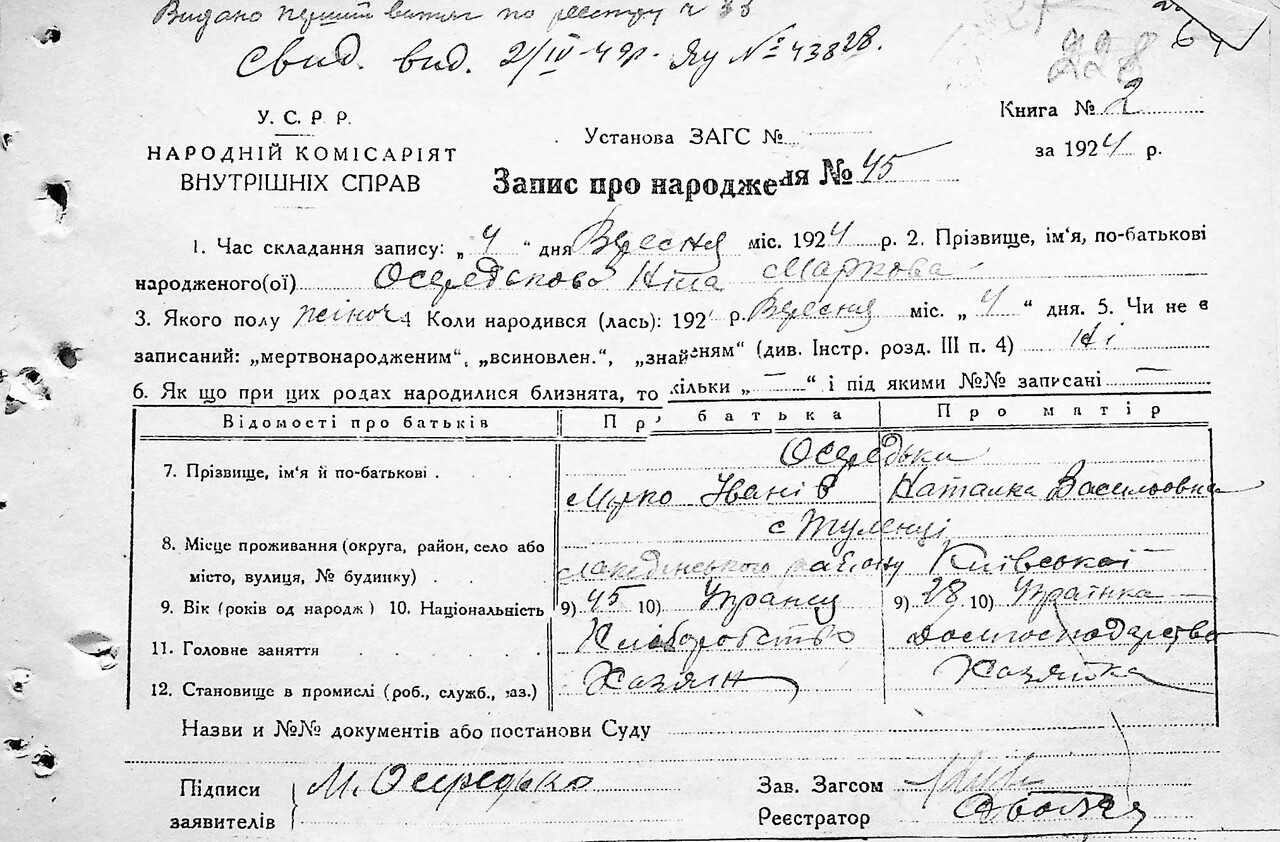 Видано перший витяг по реєстру ч 33
Свид. вид. 2/IV-49р. Яу № 43828.
228
64
У. С. Р Р.
НАРОДНІЙ КОМІСАРІЯТ
ВНУТРІШНІХ СПРАВ
Установа ЗАГС №
Книга № 2
за 1924 р.
Запис про народження № 45
1. Час складання запису: „ 4 “ дня Вересня міс. 1924 р. 2. Прізвище, ім'я, по-батькові
народженого(ої) Осередькова Ніна Маркова
3. Якого полу жіноч 4 Коли народився (лась): 192 р. Вересня міс. „ 4 “ дня. 5. Чи не є
записаний: „мертвонародженим“, „всиновлен.“, „знайденям“ (див. Інстр. розд. III п. 4) Ні
6. Як що при цих родах народилися близнята, то скільки „ — “ і під якими №№ записані —
Відомості про батьків Пр батька Про матір
7. Прізвище, ім'я й по-батькові . Осередьки
Марко Іванів Наталка Василовна
8. Місце проживання (округа, район, село або с Туленці
місто, вулиця, № будинку) . . району Київської
9. Вік (років од народж) 10. Національність 9) 45 10) Укранец 9) 28 10) Українка
11. Головне заняття . . . . Хліборобство Домгосподарство
12. Становище в промислі (роб., служб., хаз.) Хазяїн Хазяйка
Назви и №№ документів або постанови Суду
Підписи М. Осередько Зав. Загсом
заявителів Реєстратор